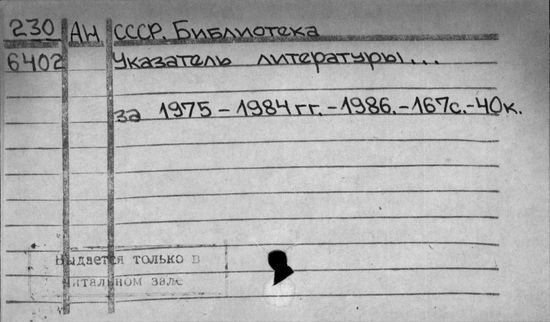 230 АН СССР. Библиотека
6402 Указатель литературы...
за 1975-1984гг.-1986.-167с.-40к.
Выдается только в
читальном зале